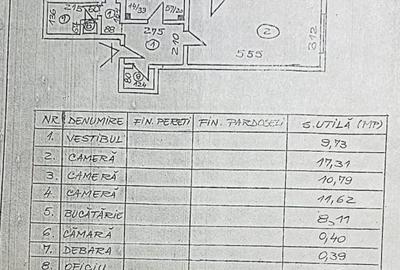 136
215
60
88
1
14/33
57/20
275
1
210
2
555
312
80
134
NR DENUMIRE FIN. PEREȚI FIN. PARDOSELI S. UTILĂ (MP)
1. VESTIBUL 9,73
2. CAMERĂ 17,31
3. CAMERĂ 10,79
4. CAMERĂ 11,62
5. BUCĂTĂRIE 8,11
6. CĂMARĂ 0,40
7. DEBARA 0,39
8. OFICIU